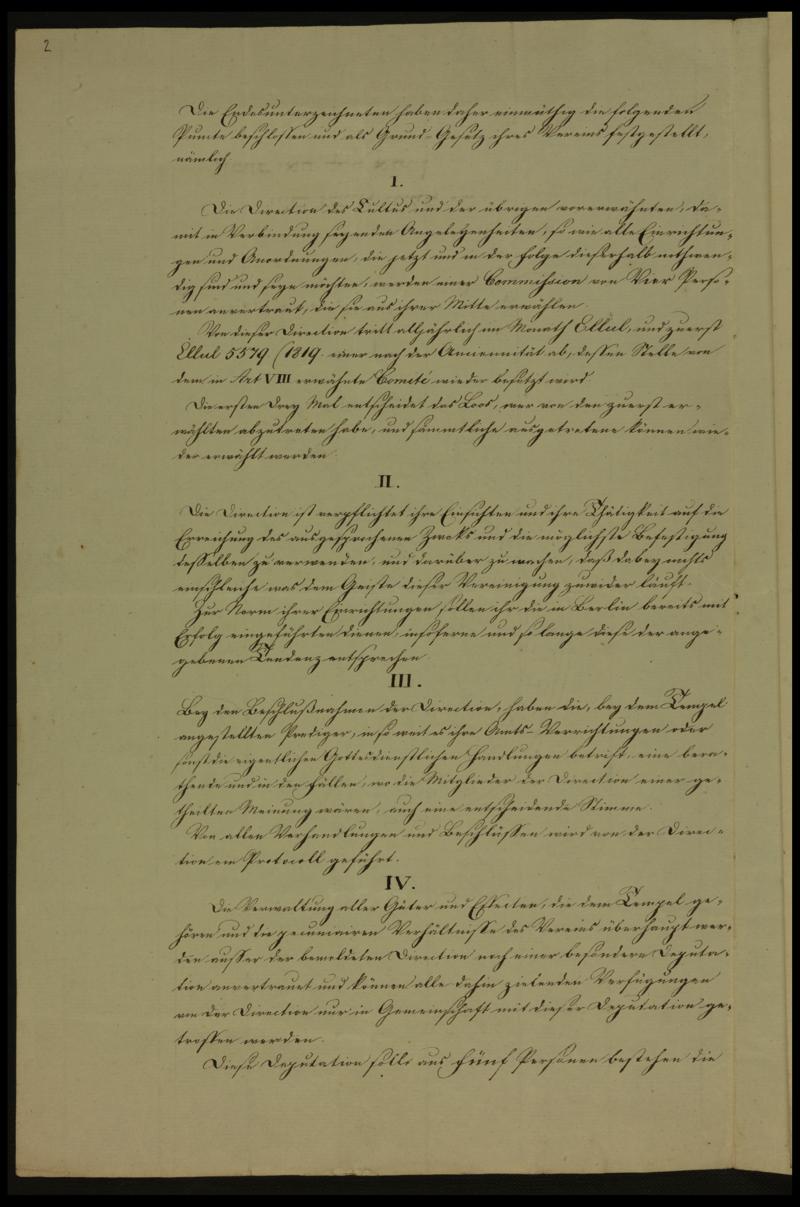 2
Die Endesunterzeichneten haben daher einmüthig die folgenden
Puncte beschlossen und als Grund-Gesetz ihres Vereins festgestellt,
nämlich
I.
Die Direction des Cultus und der übrigen vorerwähnten, da-
mit in Verbindung seyenden Angelegenheiten, so wie alle Einrichtun-
gen und Anordnungen, die jetzt und in der Folge dieserhalb nothwen-
dig sind und seyn möchten, werden einer Commission von Vier Perso-
nen anvertraut, die sie aus ihrer Mitte erwählen.
Von dieser Direction tritt alljährlich im Monath Ellul, und zuerst
Ellul 5579 (1819. einer nach der Anciennität ab, dessen Stelle von
dem in Art VIII erwähnte Comité wieder besetzt wird.
Die ersten Drey Mal entscheidet das Loos, wer von den zuerst er-
wählten abzutreten habe, und sämmtliche ausgetretene können wie-
der erwählt werden.
II.
Die Direction ist verpflichtet ihre Einsichten und ihre Thätigkeit auf die
Erreichung des ausgesprochenen Zweks und die möglichste Befestigung
desselben zu verwenden, und darüber zu wachen, daß dabey nichts
einschleiche was dem Geiste dieser Vereinigung zuwider läuft.
Zur Norm ihrer Einrichtungen sollen ihr die in Berlin bereits mit
Erfolg eingeführten dienen, insoferne und so lange diese der ange-
gebenen Tendenz entsprechen.
III.
Bey den Beschlußnahmen der Direction, haben die, bey dem Tempel
angestellten Prediger, in so weit es ihre Amts-Verrichtungen oder
sonst die eigentlichen Gottesdienstlichen Handlungen betrift, eine bera-
thende und in den Fällen, wo die Mitglieder der Direction einer ge-
theilten Meinung wären, auch eine entscheidende Stimme.
Von allen Verhandlungen und Beschlüssen wird von der Direc-
tion ein Protocoll geführt.
IV.
Die Verwaltung aller Güter und Effecten, die dem Tempel ge-
hören und die pecuniairen Verhältnisse des Vereins überhaupt wer-
den ausser der bemeldeten Direction noch einer besondern Deputa-
tion anvertrauet und können alle dahin zielenden Verfügungen
von der Direction nur in Gemeinschaft mit dieser Deputation ge-
troffen werden.
Diese Deputation solle aus fünf Personen bestehen die